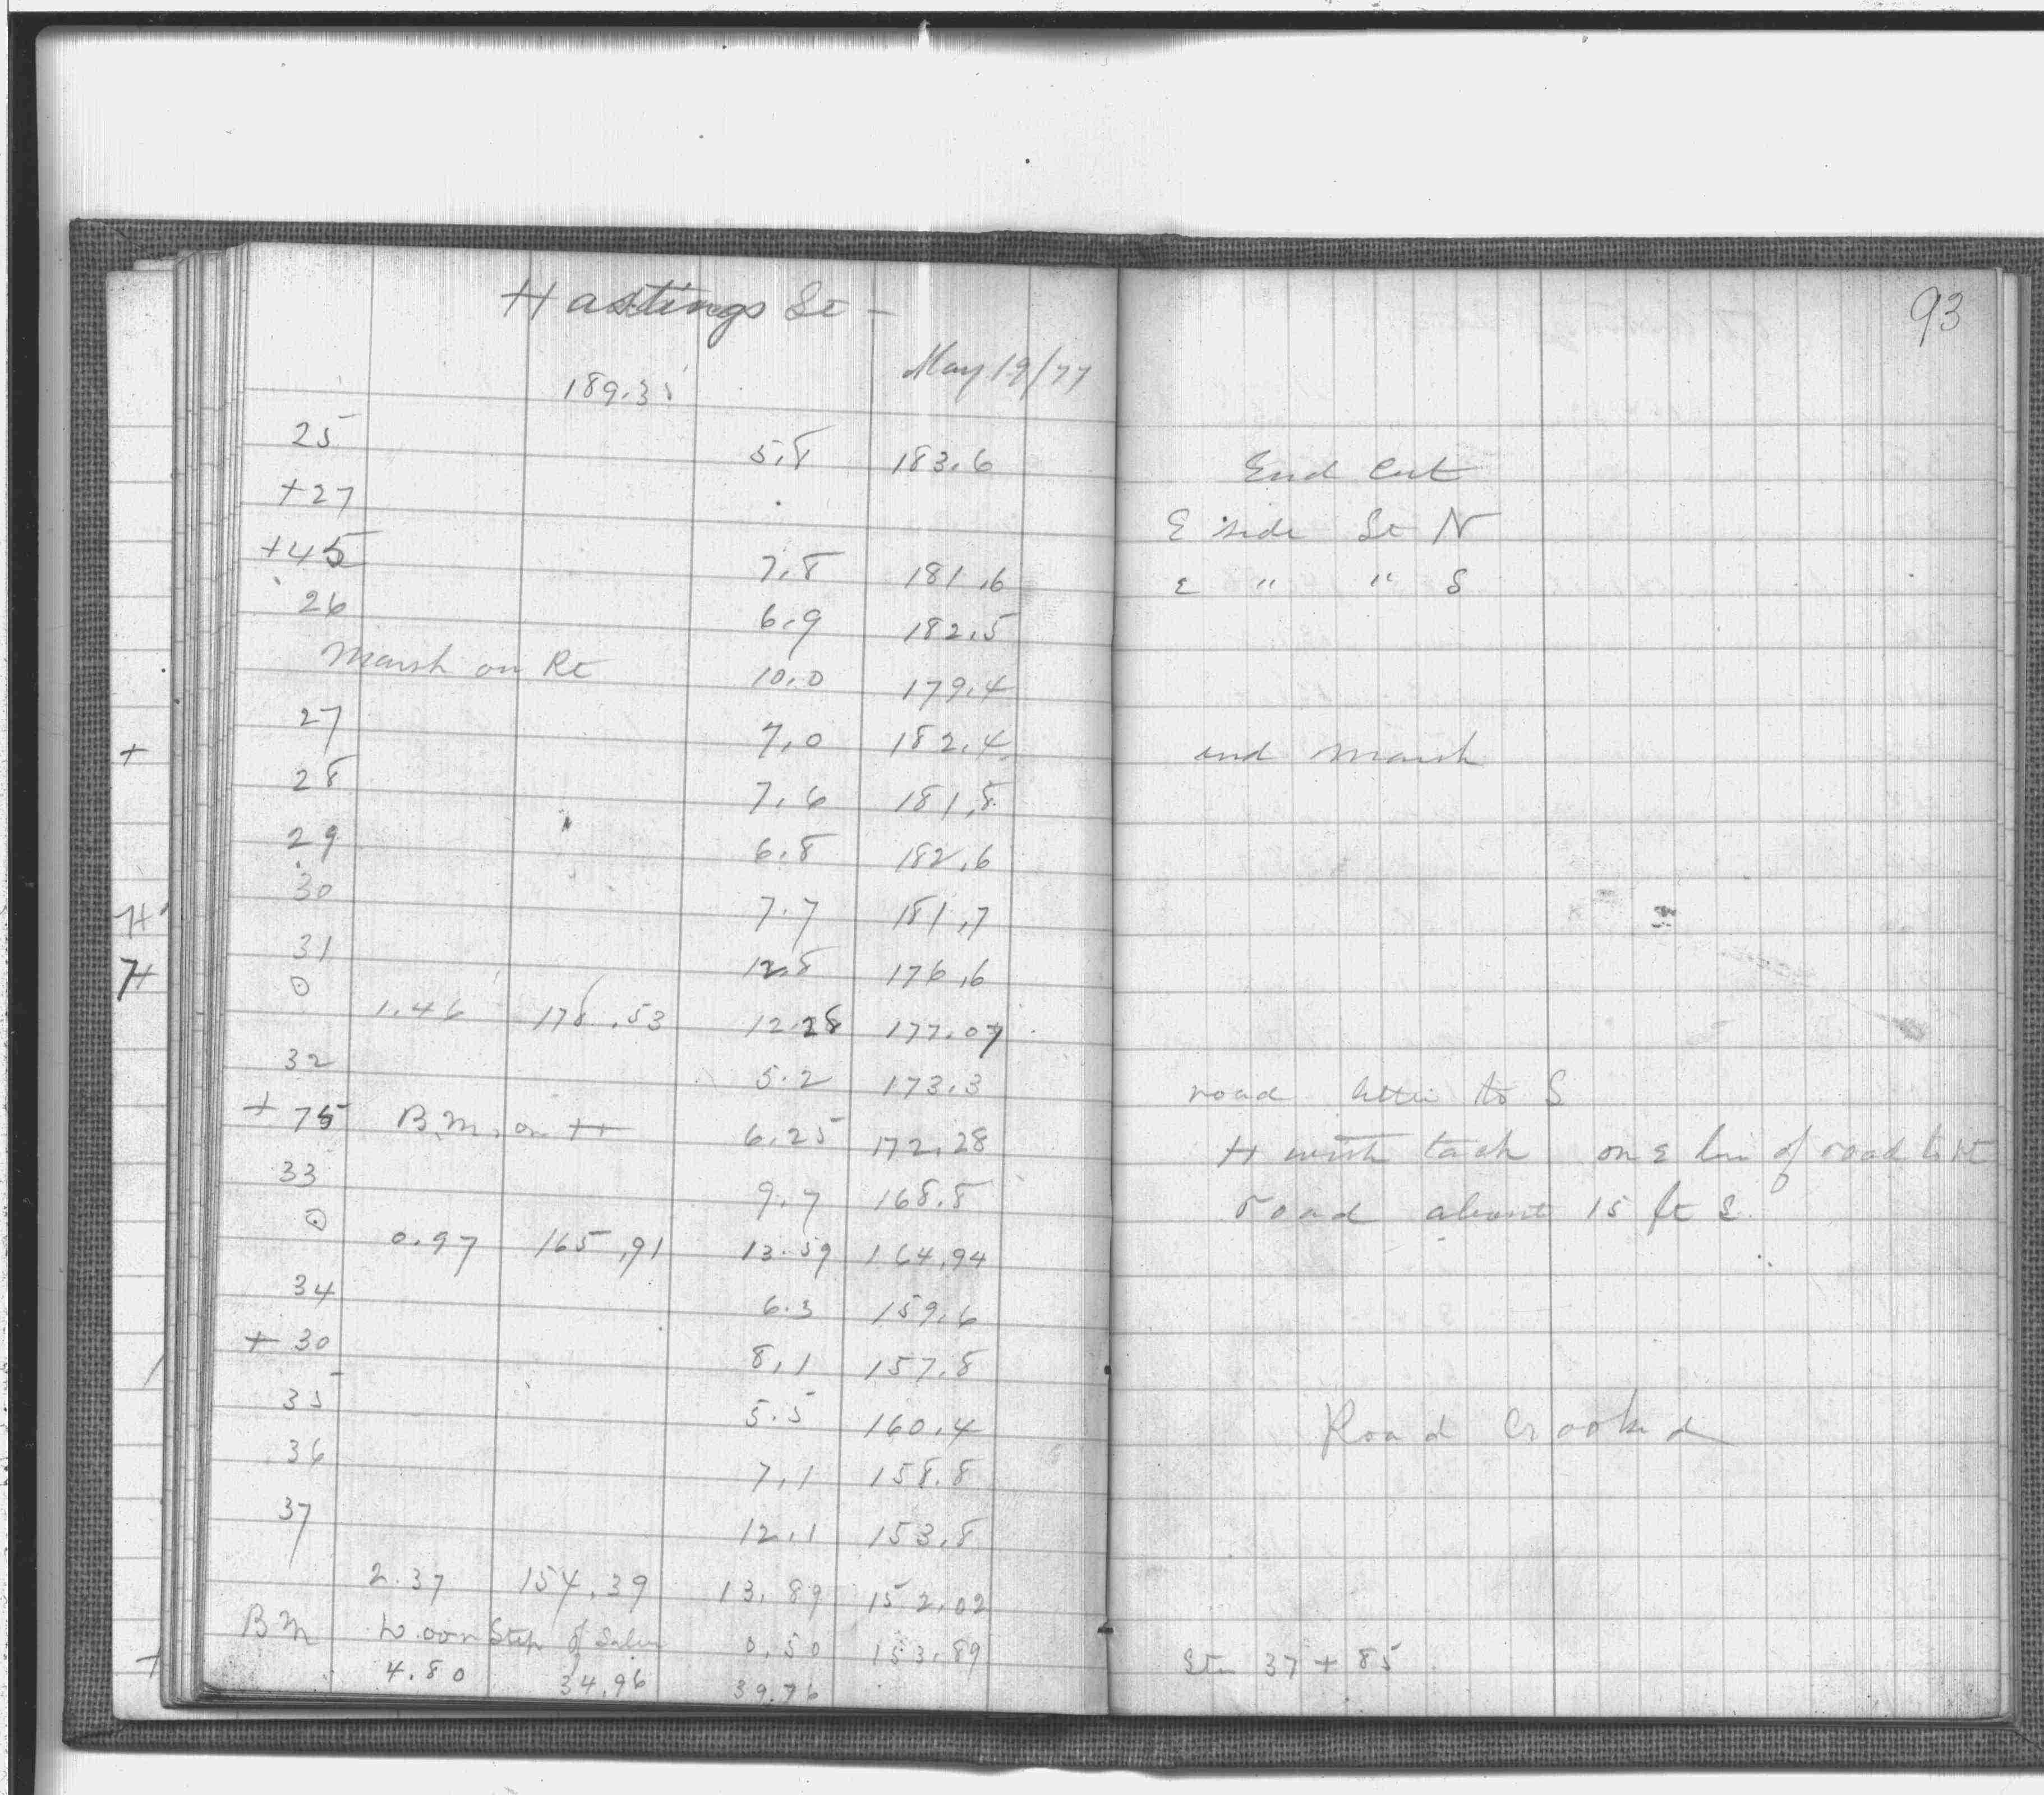 Hastings St -
93
May 19/77
189.35
25 5.8 183.6 End Cut
+27 E side St N
+45 7.8 181.6 E " " S
26 6.9 182.5
Marsh on Rt 10.0 179.4
27 7.0 182.4 end marsh
28 7.6 181.8
29 6.8 182.6
30 7.7 181.7
31 12.8 176.6
⊙ 1.46 178.53 12.28 177.07
32 5.2 173.3 road to S
+75 B.M. on H 6.25 172.28 H with tack on E line of road to
33 9.7 168.8 road about 15 ft
⊙ 0.97 165.91 13.59 164.94
34 6.3 159.6
+30 8.1 157.8
35 5.5 160.4 Road Crooked
36 7.1 158.8
37 12.1 153.8
2.37 154.39 13.89 152.02
BM Door Step of 0.50 153.89 Sta 37+85
4.80 34.96 39.76